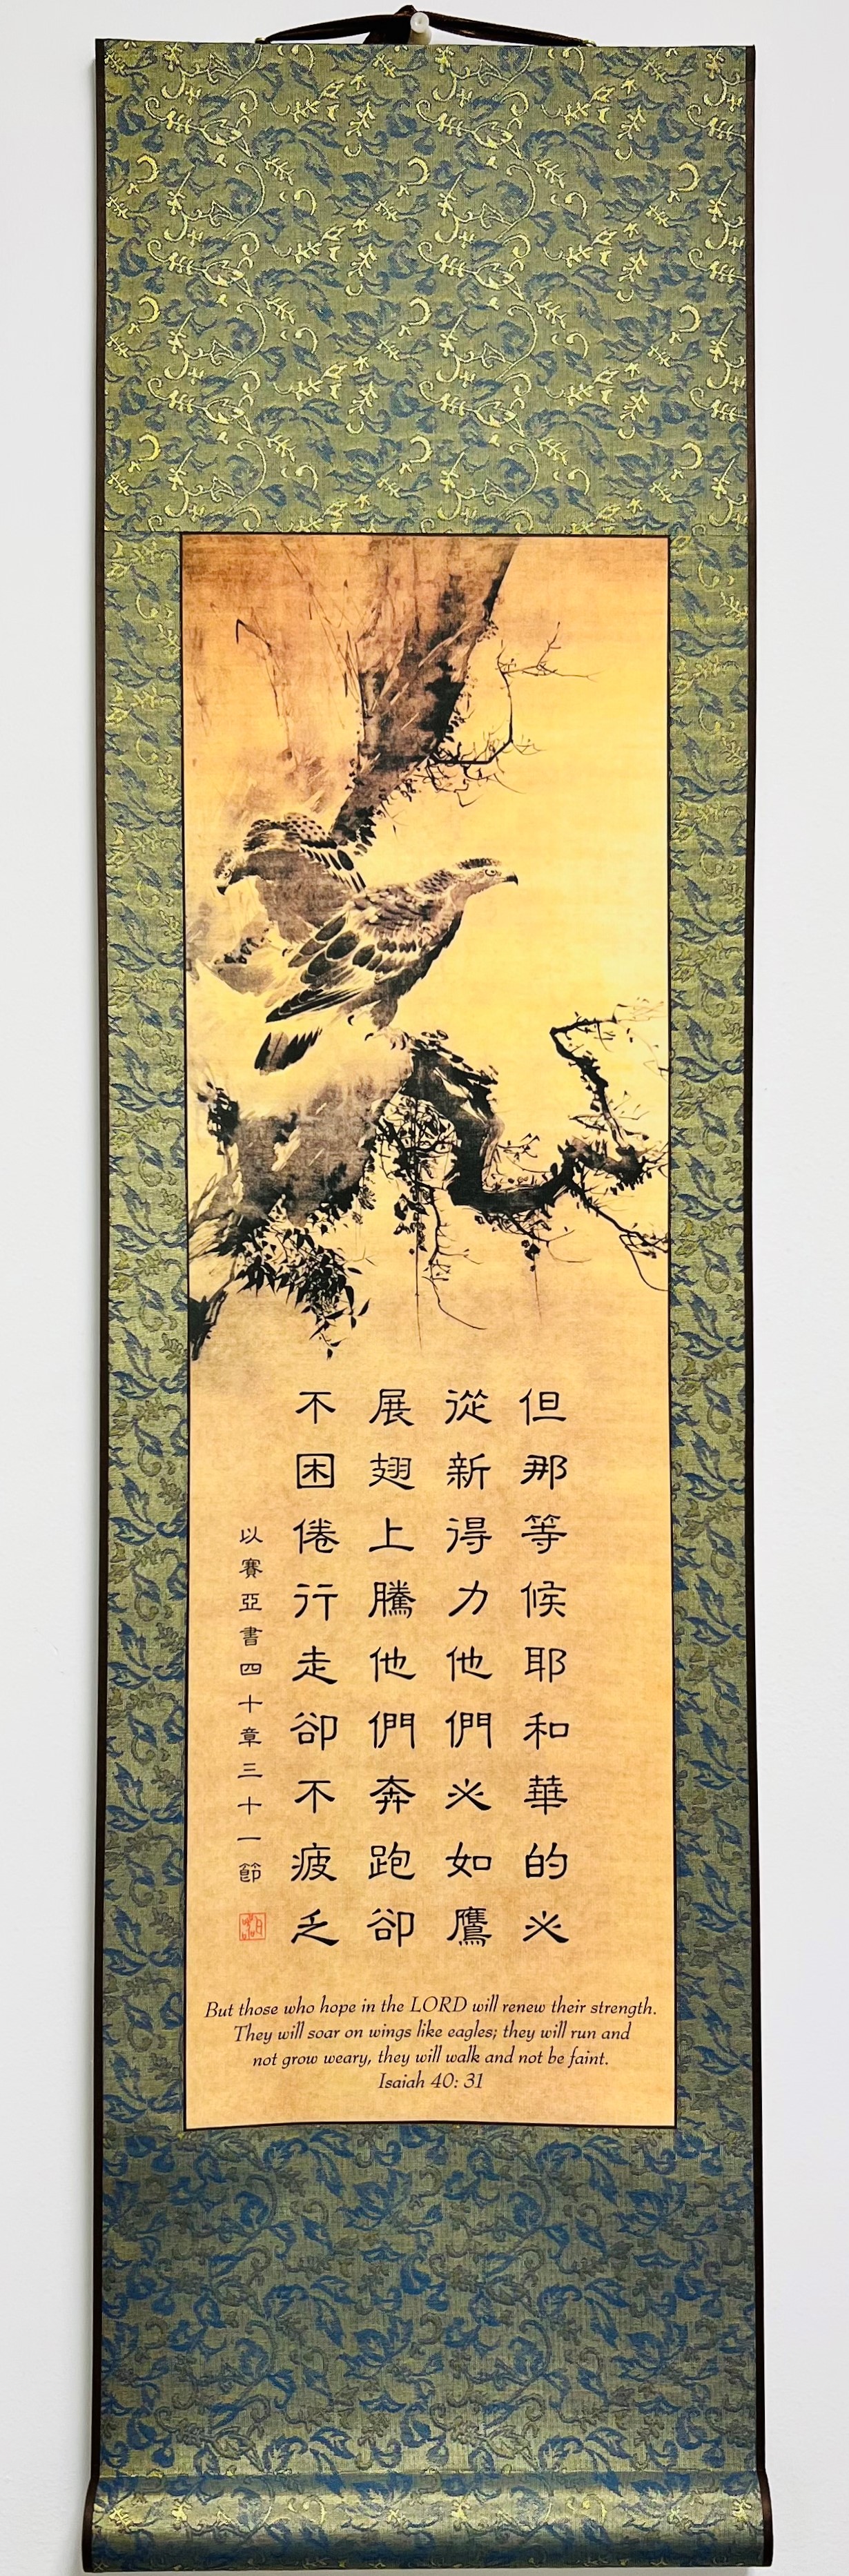 但那等候耶和華的必
從新得力他們必如鷹
展翅上騰他們奔跑卻
不困倦行走卻不疲乏
以賽亞書四十章三十一節
But those who hope in the LORD will renew their strength.
They will soar on wings like eagles; they will run and
not grow weary, they will walk and not be faint.
Isaiah 40: 31